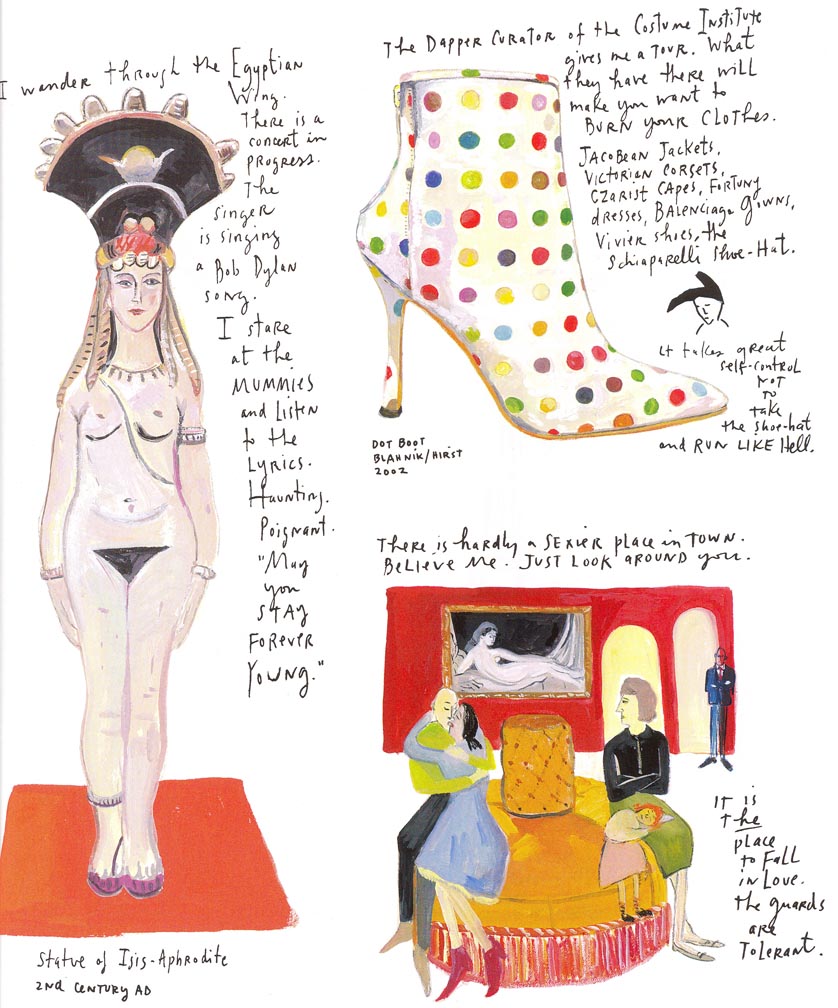 I wander through the Egyptian
Wing.
There is a
concert in
progress.
The
singer
is singing
a Bob Dylan
song.
I stare
at the
MUMMIES
and Listen
to the
Lyrics.
Haunting.
Poignant.
"May
you
STAY
FOREVER
YOUNG."
Statue of Isis-Aphrodite
2nd CENTURY AD
The DAPPER CURATOR of the Costume Institute
gives me a TOUR. What
they have there will
make you want to
BURN your CLOTHES.
JACOBEAN JACKETS,
VICTORIAN CORSETS,
CZARIST CAPES, FORTUNY
dresses, BALENCIAGA GOWNS,
Vivier shoes, the
Schiaparelli Shoe-Hat.
It takes great
self-control
NOT
TO
take
the shoe-hat
and RUN LIKE Hell.
DOT BOOT
BLAHNIK/HIRST
2002
There is hardly a SEXIER place in TOWN.
BELIEVE ME. JUST LOOK AROUND you.
IT is
the
place
to FALL
in LOVE.
The guards
are
TOLERANT.